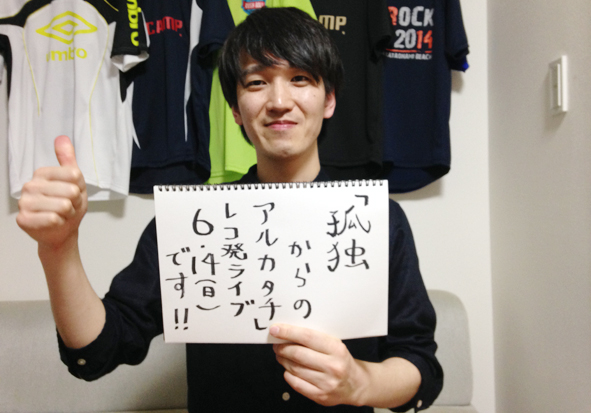 「孤独
からの
アルカタチ」
レコ発ライブ
6.14(日)
です!!
umbro
umbro
CAMP
MP
ROCK
2014